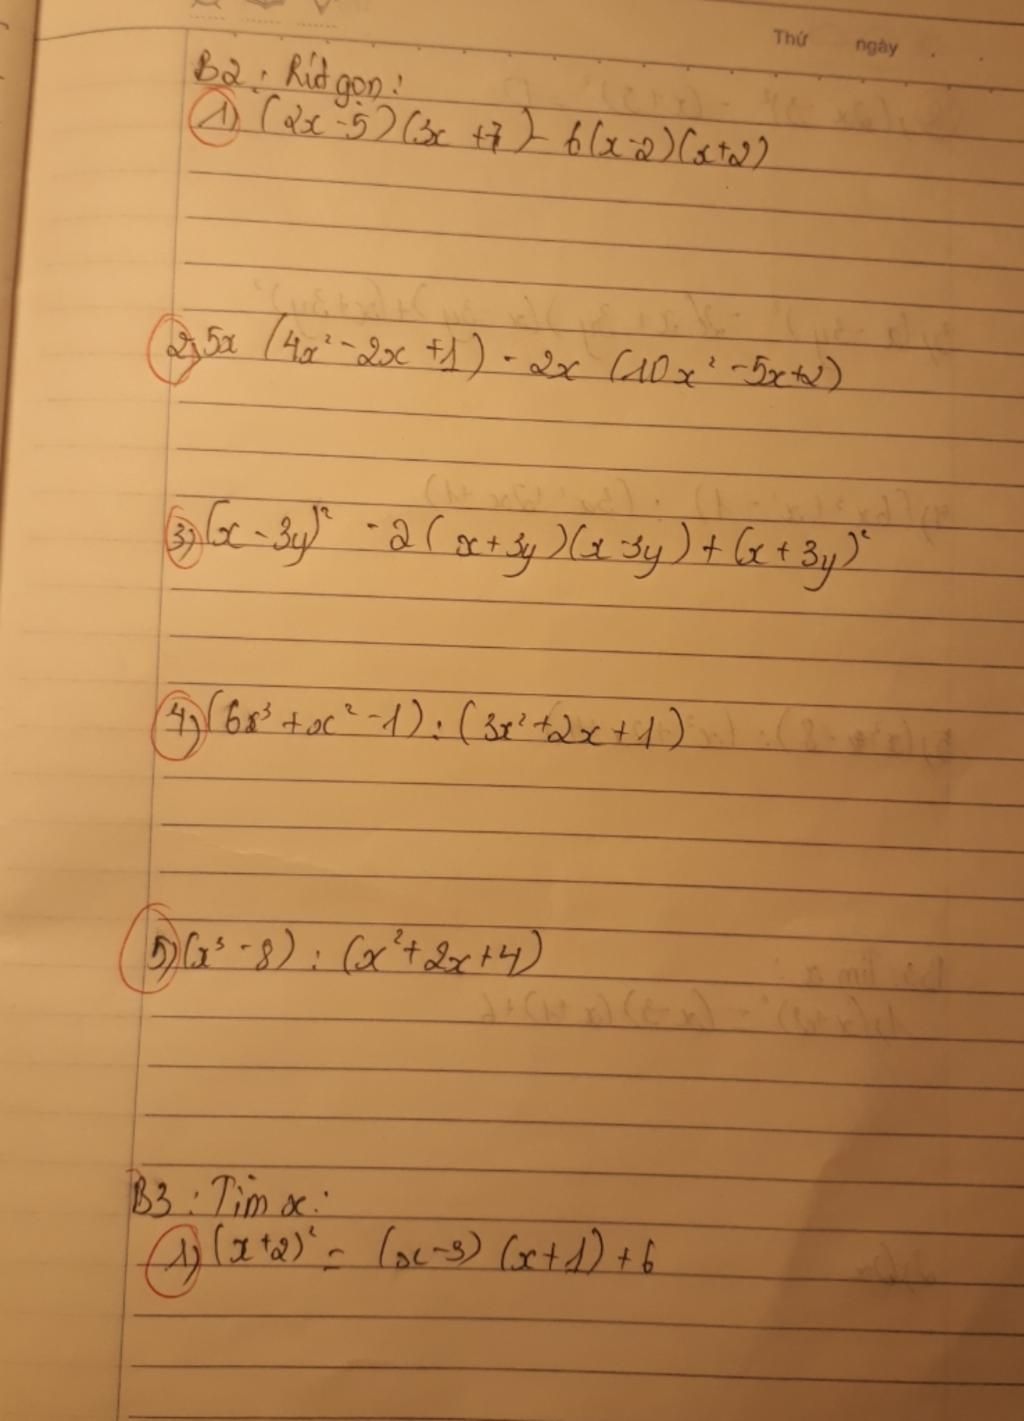 Thứ ngày .
B2: Rút gọn:
1) (2x-5)(3x+7)-6(x-2)(x+2)
2) 5x (4x²-2x+1) - 2x (10x²-5x+2)
3) (x-3y)² -2(x+3y)(x-3y)+(x+3y)²
4) (6x³+x²-1):(3x²+2x+1)
5) (x³-8):(x²+2x+4)
B3: Tìm x:
1) (x+2)² = (x-3) (x+1)+6